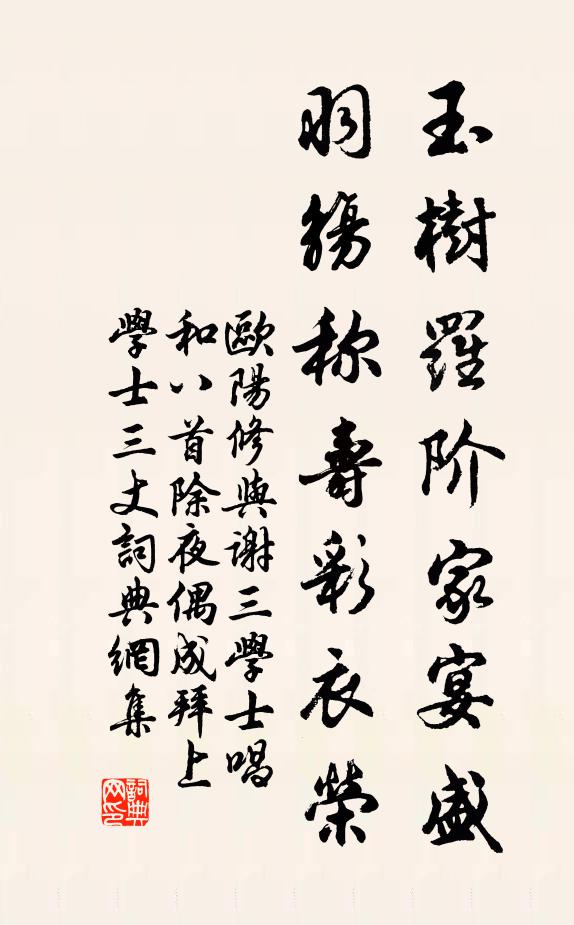 玉樹羅阶家宴盛
羽觴称壽彩衣榮
歐陽修與谢三學士唱
和八首除夜偶成拜上
學士三丈詞典網集
詞典
网印